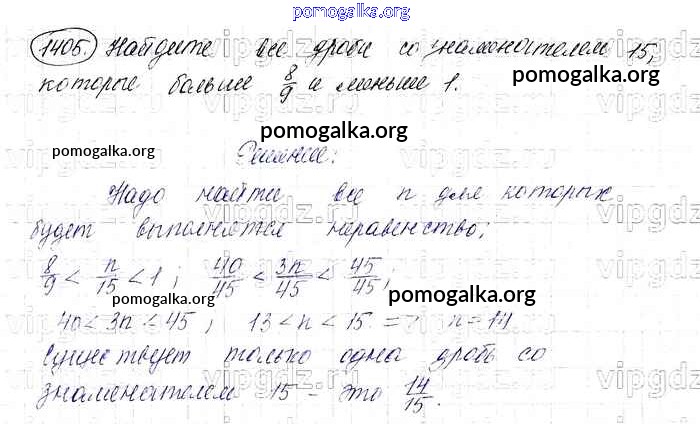 pomogalka.org
1405. Найдите все дроби со знаменателем 15,
которые больше 8/9 и меньше 1.
pomogalka.org
pomogalka.org
pomogalka.org
Решение:
Надо найти все n для которых
будет выполнятся неравенство;
8/9 < n/15 < 1 ; 40/45 < 3n/45 < 45/45 ;
pomogalka.org
pomogalka.org
40 < 3n < 45 ; 13 < n < 15 => n = 14
Существует только одна дробь со
знаменателем 15 - это 14/15.
vipgdz.ru